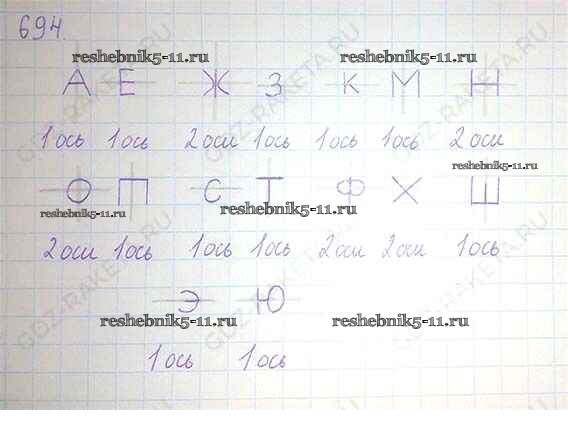 694.
reshebnik5-11.ru reshebnik5-11.ru
А Е Ж З К М Н
GDZ-RAKETA.RU
1 ось 1 ось 2 оси 1 ось 1 ось 1 ось 2 оси
reshebnik5-11.ru
О П С Т Ф Х Ш
reshebnik5-11.ru reshebnik5-11.ru
2 оси 1 ось 1 ось 1 ось 2 оси 2 оси 1 ось
GDZ-RAKETA.RU
Э Ю
reshebnik5-11.ru reshebnik5-11.ru
1 ось 1 ось